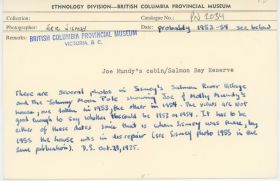 ETHNOLOGY DIVISION—BRITISH COLUMBIA PROVINCIAL MUSEUM
Collection: Catalogue No.: PN 2034
Photographer: Lee Sidney Date: probably 1953-54 see below
Remarks: BRITISH COLUMBIA PROVINCIAL MUSEUM
VICTORIA, B. C.
Joe Mundy's cabin/Salmon Bay Reserve
There are several photos in Sidney's Salmon River Village
and the Johnny Moon Pole showing Joe & Molly Mundy's
house, one taken in 1953, the other in 1954. The views are not
good enough to say whether this could be 1953 or 1954. It has to be
either of these dates since that is when Sidney was there; by
1955 the house was in disrepair (see Sidney photo 1955 in the
same publication). D.S. Oct. 28, 1985.